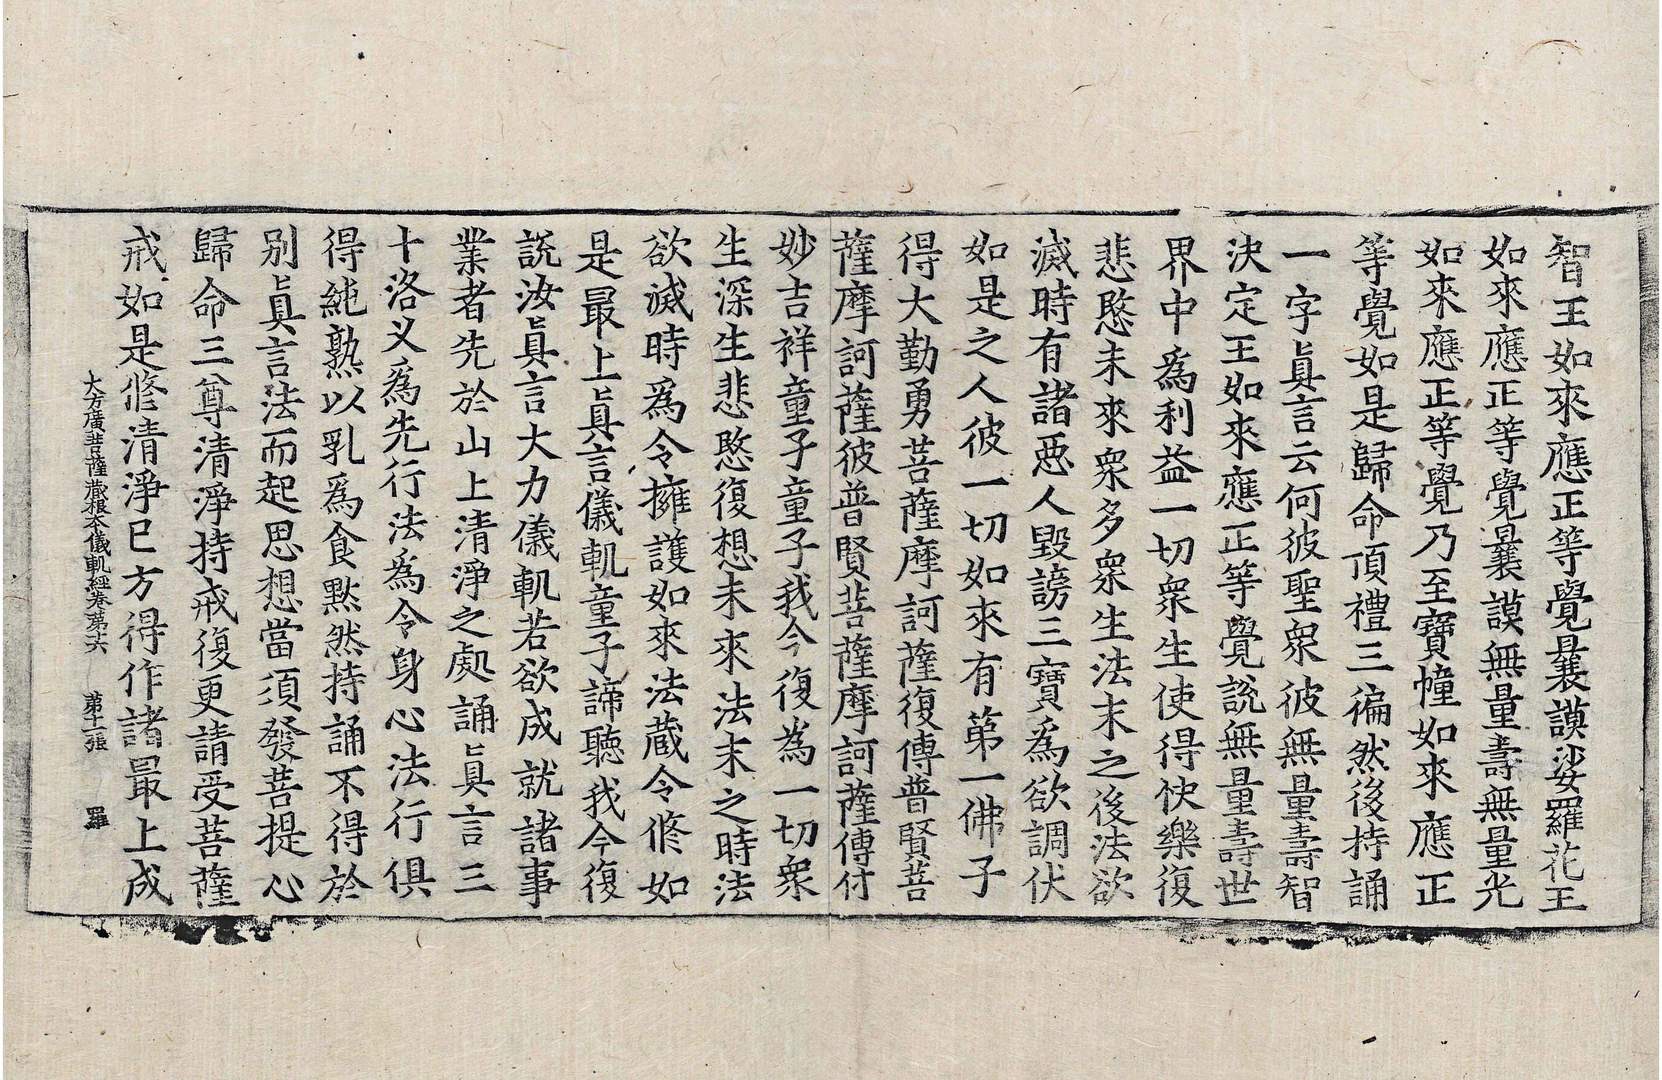 智王如來應正等覺曩謨娑羅花王
如來應正等覺曩謨無量壽無量光
如來應正等覺乃至寶幢如來應正
等覺如是歸命頂禮三徧然後持誦
一字眞言云何彼聖衆彼無量壽智
決定王如來應正等覺說無量壽世
界中爲利益一切衆生使得快樂復
悲愍未來衆多衆生法末之後法欲
滅時有諸惡人毀謗三寶爲欲調伏
如是之人彼一切如來有第一佛子
得大勤勇菩薩摩訶薩復傳普賢菩
薩摩訶薩彼普賢菩薩摩訶薩傳付
妙吉祥童子童子我今復為一切衆
生深生悲愍復想未來法末之時法
欲滅時爲令擁護如來法蔵令修如
是最上眞言儀軌童子諦聽我今復
說汝眞言大力儀軌若欲成就諸事
業者先於山上清淨之處誦眞言三
十洛义爲先行法爲令身心法行俱
得純熟以乳爲食黙然持誦不得於
别眞言法而起思想當須發菩提心
歸命三尊清淨持戒復更請受菩薩
戒如是修清淨已方得作諸最上成
大方廣菩薩藏根本儀軌經卷第十六 第十一張 羅